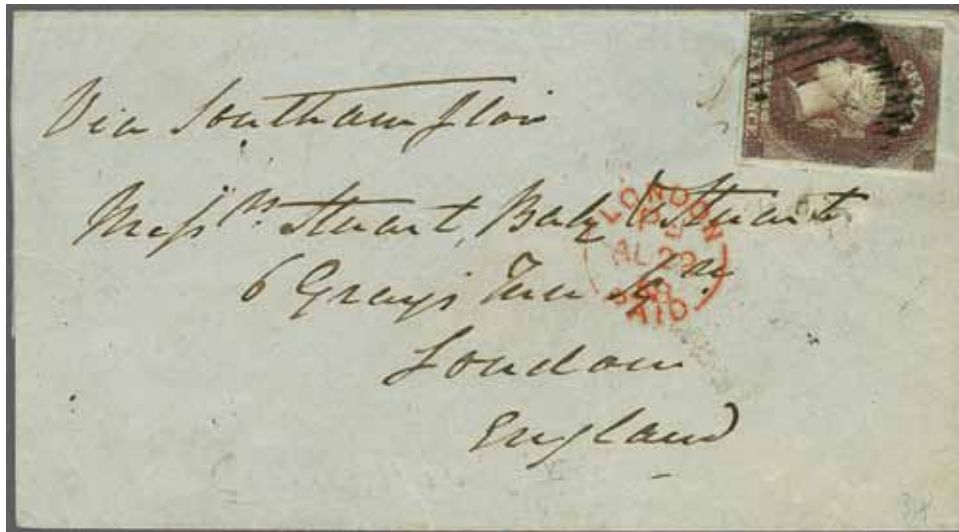 Via Southampton
Mess.rs Stuart, & Stuart
6 Grays Inn Sq.re
London
England
LONDON
AU 29
PAID
CEYLON